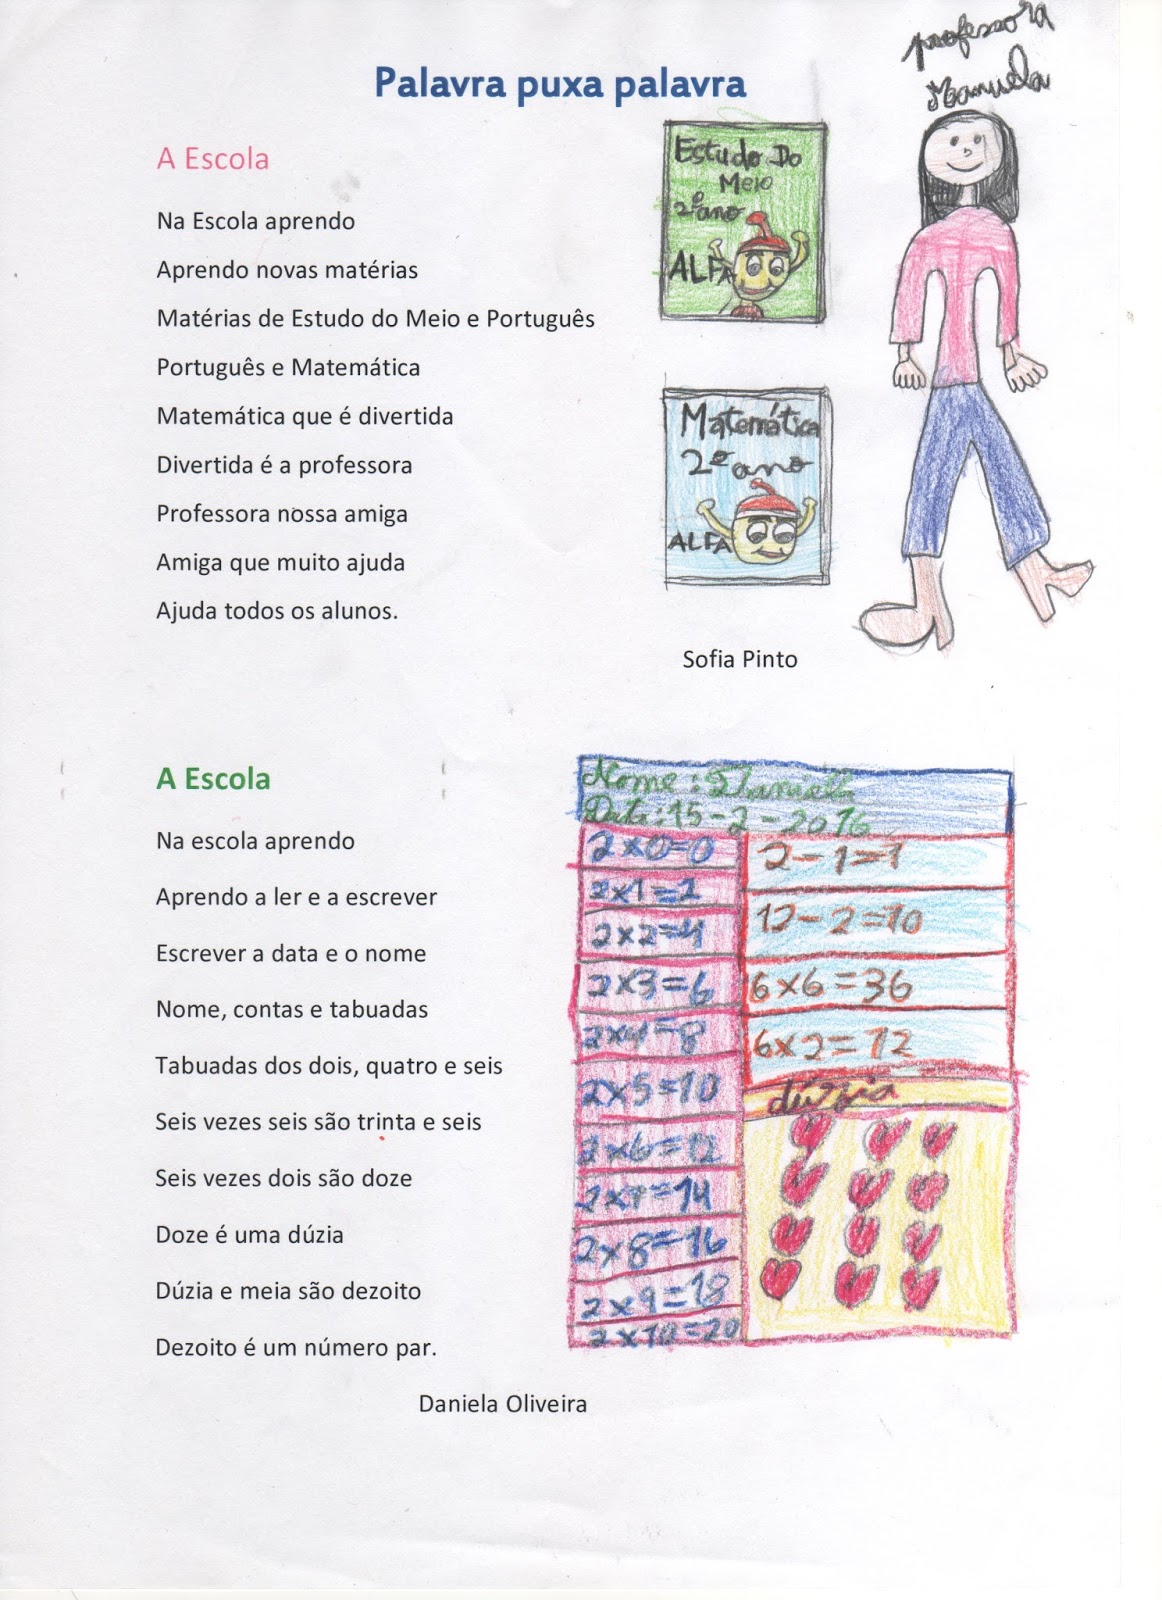 professora
Manuela
Palavra puxa palavra
A Escola
Na Escola aprendo
Aprendo novas matérias
Matérias de Estudo do Meio e Português
Português e Matemática
Matemática que é divertida
Divertida é a professora
Professora nossa amiga
Amiga que muito ajuda
Ajuda todos os alunos.
Estudo Do
Meio
2º ano
ALFA
Matemática
2º ano
ALFA
Sofia Pinto
A Escola
Na escola aprendo
Aprendo a ler e a escrever
Escrever a data e o nome
Nome, contas e tabuadas
Tabuadas dos dois, quatro e seis
Seis vezes seis são trinta e seis
Seis vezes dois são doze
Doze é uma dúzia
Dúzia e meia são dezoito
Dezoito é um número par.
Nome: Daniela
Data: 15-2-2016
2x0=0
2x1=2
2x2=4
2x3=6
2x4=8
2x5=10
2x6=12
2x7=14
2x8=16
2x9=18
2x10=20
2-1=1
12-2=10
6x6=36
6x2=12
dúzia
Daniela Oliveira